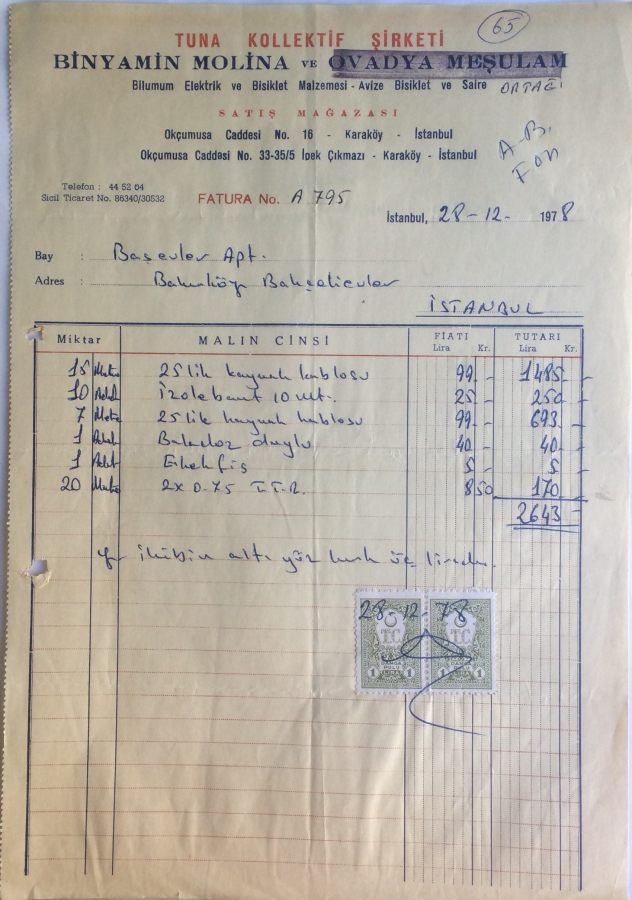 65
TUNA KOLLEKTİF ŞİRKETİ
BİNYAMİN MOLİNA VE OVADYA MEŞULAM
Bilumum Elektrik ve Bisiklet Malzemesi - Avize Bisiklet ve Saire ORTAĞI
SATIŞ MAĞAZASI
Okçumusa Caddesi No. 16 - Karaköy - İstanbul
Okçumusa Caddesi No. 33-35/5 İpek Çıkmazı - Karaköy - İstanbul
A.B.
Fon
Telefon : 44 52 04
Sicil Ticaret No. 86340/30532
FATURA No. A 795
İstanbul, 28-12- 1978
Bay : Başevler Apt.
Adres : Bakırköy Bahçelievler
İSTANBUL
Miktar MALIN CİNSİ FİATI TUTARI
Lira Kr. Lira Kr.
15 Metre 25 lik kaynak kablosu 99.- 1485.-
10 Adet İzolebant 10 mt. 25- 250-
7 Metre 25 lik kaynak kablosu 99.- 693.-
1 Adet duylu 40- 40-
1 Adet Erkek fiş 5- 5-
20 Metre 2x0.75 T.T.R. 8 50 170-
2643-
ikibin altı yüz kırk üç liradır.
28-12-78
T.C. T.C.
DAMGA PULU DAMGA PULU
1 LİRA 1 1 LİRA 1